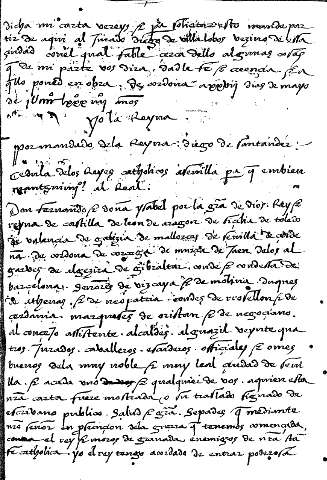 dicha mi carta vereys, e por la solicitar esto mande par
tir de aqui al Jurado diego de villalobos vezino de essa
ciudad con el qual fable cerca dello algunas cosas
que de mi parte vos dira, dadle fe e creencia, e a
quello poned en obra, de cordoua a xxvij dias de mayo
de años
yo la Reyna.
por mandado de la Reyna: diego de santander:
Cedula de los Reyes catholicos a seuilla pa q embien
al Real:
Don fernando e doña ysabel por la gra de dios, Rey e
reyna de castilla de leon de aragon de sicilia de toledo
de valencia de galizia de mallorcas de seuilla de cerde
ña de cordoua de corcega de murcia de Jaen delos al
garbes de algezira de gibraltar, conde e condesa de
barcelona, señores de vizcaya e de molina, duques
de athenas, e de neopatria, condes de rosellon e de
cerdania, marqueses de oristan e de gociano.
al concejo assistente, alcaldes, alguazil veynte qua
tros, Jurados, caualleros, escuderos, officiales e omes
buenos dela muy noble e muy leal ciudad de seui
lla, e a cada vno e qualquier de vos, a quien esta
nra carta fuere mostrada, o su traslado signado de
escriuano publico, Salud e gra, Sepades que mediante
nro señor en de la guerra q tenemos començada,
el rey e moros de granada, enemigos de nra sta
fe catholica, yo el rey tengo acordado de entrar poderosa